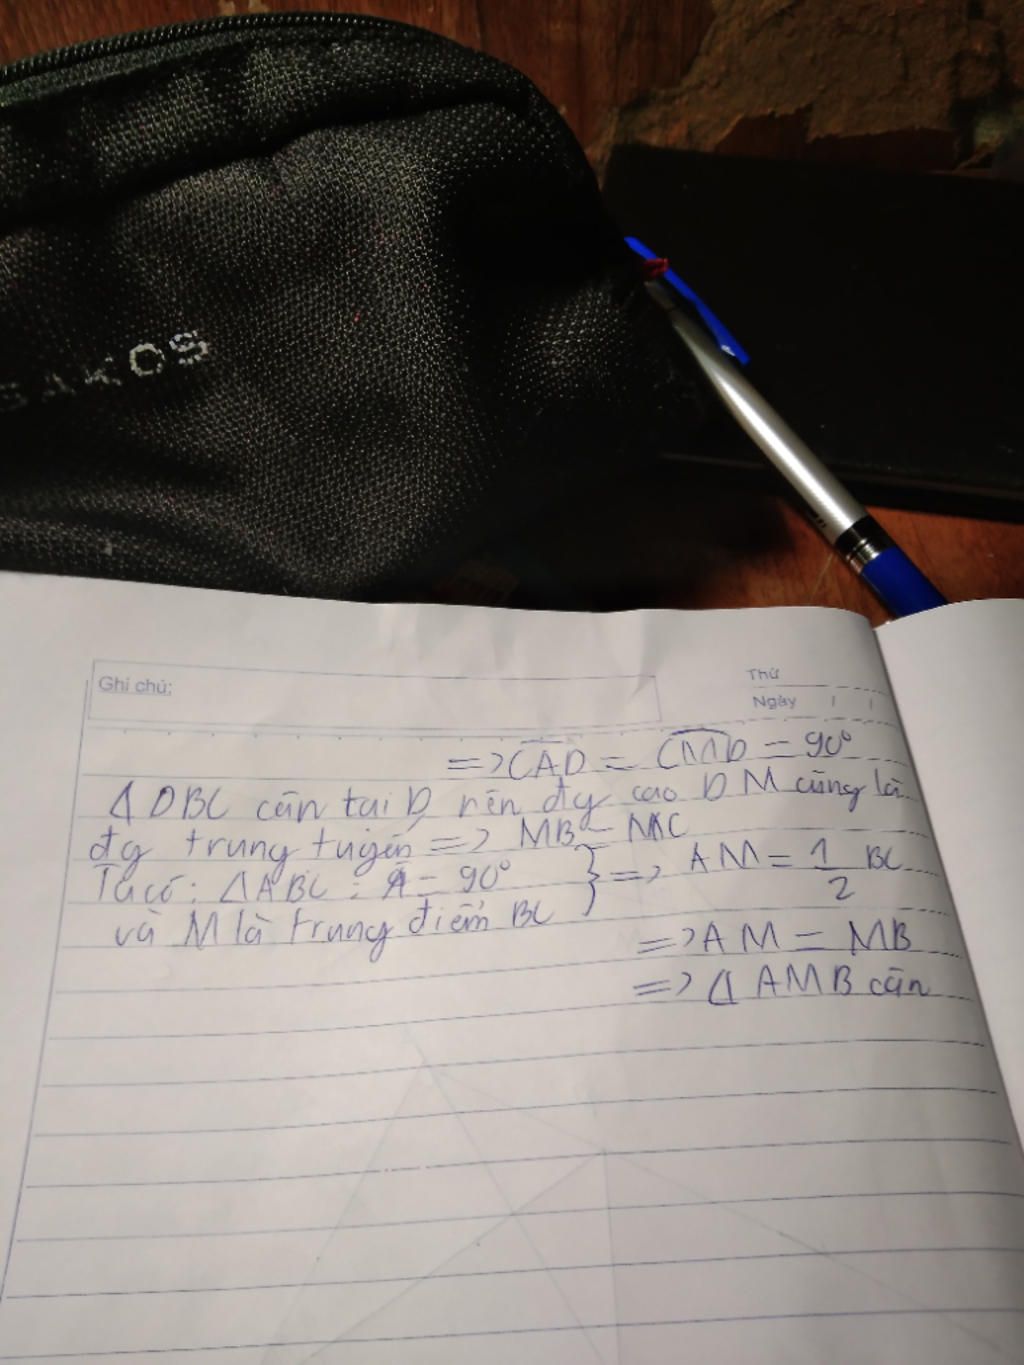 SAKOS
Ghi chú:
Thứ
Ngày / /
=> CAD = CMD = 90°
Δ DBC cân tại D nên đg cao DM cũng là
đg trung tuyến => MB = MC
Ta có: ΔABC: Â = 90° } => AM = 1/2 BC
và M là trung điểm BC
=> AM = MB
=> Δ AMB cân